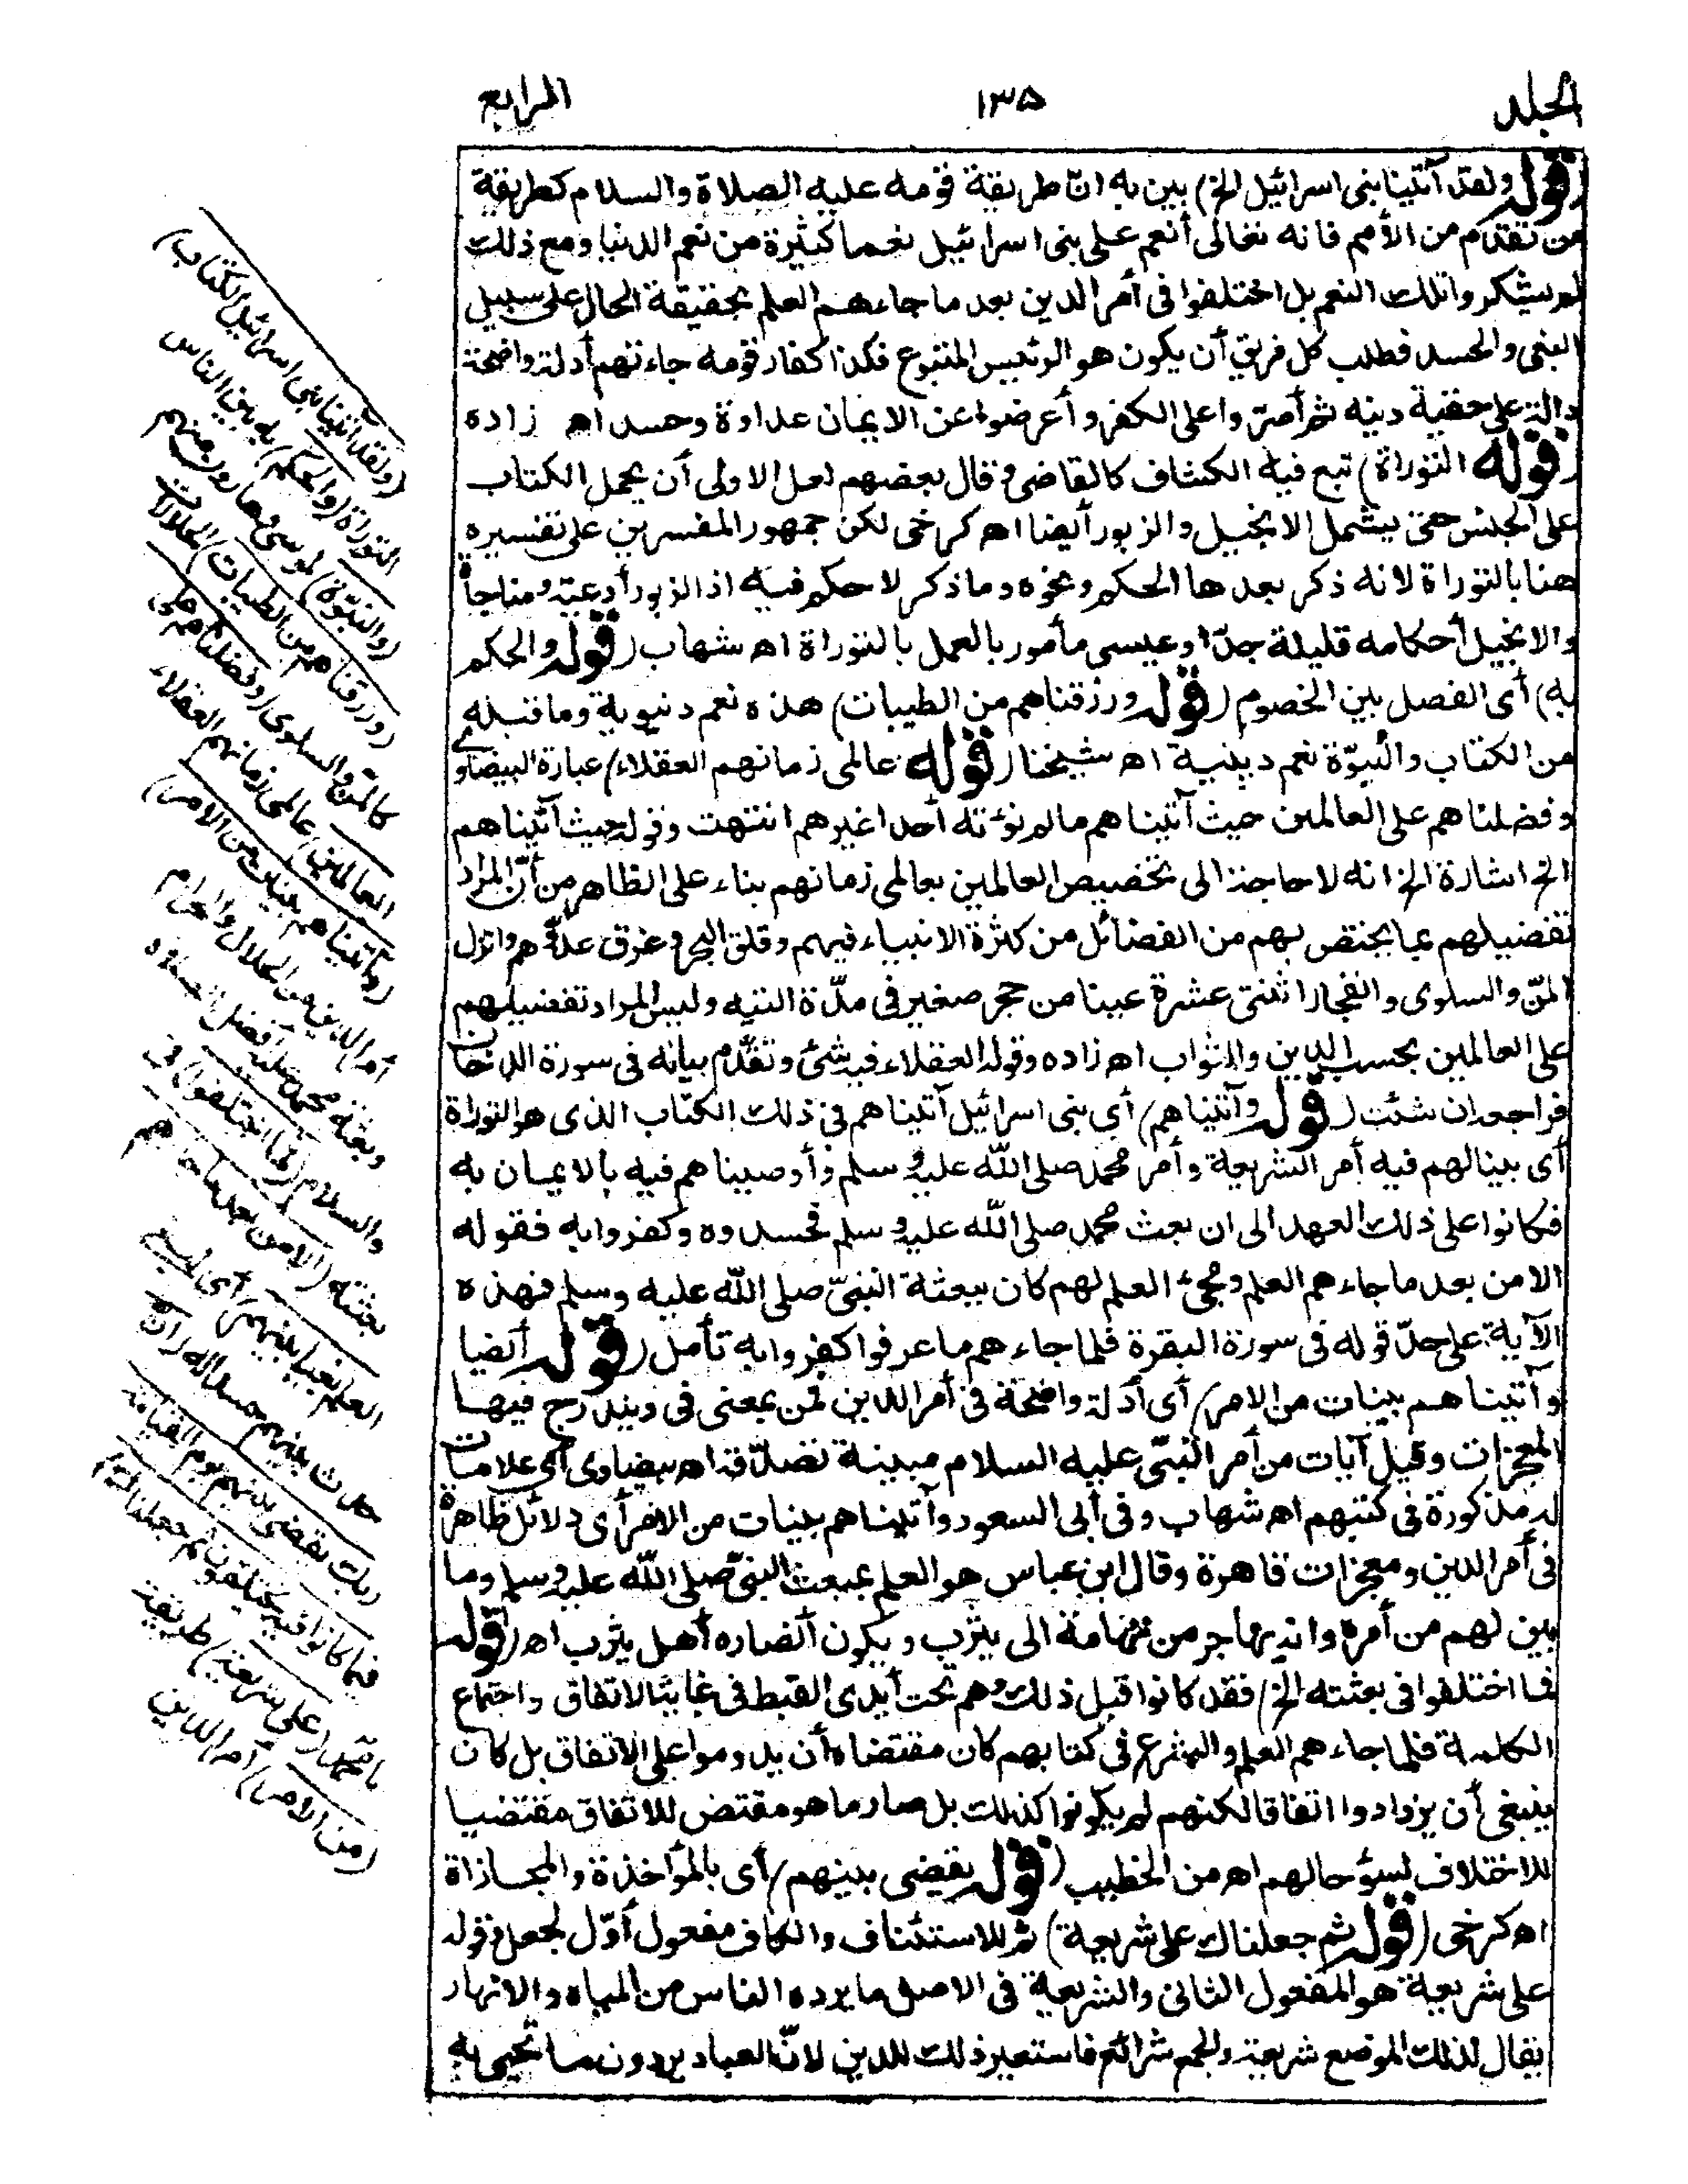 الجلد ١٣٥ الرابع
(قوله ولقد آتينا بنى اسرائيل الخ) بين به انّ طريقة قومه عليه الصلاة والسلام كطريقة
من تقدّم من الأمم فانه تعالى أنعم على بنى اسرائيل نعما كثيرة من نعم الدنيا ومع ذلك
لم يشكروا تلك النعم بل اختلفوا فى أمر الدين بعد ما جاءهم العلم بحقيقة الحال على سبيل
البغى والحسد فطلب كل فريق أن يكون هو الرئيس المتبوع فكذا كفار قومه جاءتهم أدلة واضحة
دالة على حقية دينه ثم أصرّوا على الكفر وأعرضوا عن الايمان عداوة وحسدا اه زاده
(قوله التوراة) تبع فيه الكشاف كالقاضى وقال بعضهم لعل الاولى أن يحمل الكتاب
على الجنس حتى يشمل الانجيل والزبور أيضا اه كرخى لكن جمهور المفسرين على تفسيره
هنا بالتوراة لانه ذكر بعدها الحكم ونحوه وما ذكر لا حكم فيه اذ الزبور أدعية ومناجاة
والانجيل أحكامه قليلة جدّا وعيسى مأمور بالعمل بالتوراة اه شهاب (قوله والحكم
به) أى الفصل بين الخصوم (قوله ورزقناهم من الطيبات) هذه نعم دنيوية وما قبله
من الكتاب والنبوّة نعم دينية اه شيخنا (قوله عالمى زمانهم العقلاء) عبارة البيضاوى
وفضلناهم على العالمين حيث آتيناهم ما لم نؤته أحدا غيرهم انتهت وقوله حيث آتيناهم
الخ اشارة الخ انه لا حاجة الى تخصيص العالمين بعالمى زمانهم بناء على الظاهر من أنّ المراد
تفضيلهم بما يختص بهم من الفضائل من كثرة الانبياء فيهم وفلق البحر وغرق عدوّهم وانزل
المنّ والسلوى وانفجار اثنتى عشرة عينا من حجر صغير فى مدّة التيه وليس المراد تفضيلهم
على العالمين بحسب الدين والثواب اه زاده وقوله العقلاء فيه شئ وتقدّم بيانه فى سورة الدخان
فراجعه ان شئت (قوله وآتيناهم) أي بنى اسرائيل آتيناهم فى ذلك الكتاب الذى هو التوراة
أى بينا لهم فيه أمر الشريعة وأمر محمد صلى الله عليه وسلم وأوصيناهم فيه بالايمان به
فكانوا على ذلك العهد الى ان بعث محمد صلى الله عليه وسلم فحسدوه وكفروا به فقوله
الا من بعد ما جاءهم العلم ومجئ العلم لهم كان ببعثة النبىّ صلى الله عليه وسلم فهذه
الآية على حدّ قوله فى سورة البقرة فلما جاءهم ما عرفوا كفروا به تأمل (قوله أيضا
وآتيناهم بينات من الامر) أى أدلة واضحة فى أمر الدين فمن بمعنى فى ويندرج فيها
المعجزات وقيل آيات من أمر النبىّ عليه السلام مبينة لصدقه اه بيضاوى أى علامات
له مذكورة فى كتبهم اه شهاب وفى أبى السعود وآتيناهم بينات من الامر أى دلائل ظاهرة
فى أمر الدين ومعجزات قاهرة وقال ابن عباس هو العلم بمبعث النبىّ صلى الله عليه وسلم وما
بين لهم من أمره وانه يهاجر من تهامة الى يثرب ويكون أنصاره أهل يثرب اه (قوله
فما اختلفوا فى بعثته الخ) فقد كانوا قبل ذلك وهم تحت أيدى القبط فى غاية الاتفاق واجتماع
الكلمة فلما جاءهم العلم والشرع فى كتابهم كان مقتضاه أن يدوموا على الاتفاق بل كان
ينبغى أن يزدادوا اتفاقا لكنهم لم يكونوا كذلك بل صار ما هو مقتض للاتفاق مقتضيا
للاختلاف لسوء حالهم اه من الخطيب (قوله يقضى بينهم) أى بالمؤاخذة والمجازاة
اه كرخى (قوله ثم جعلناك على شريعة) ثم للاستئناف والكاف مفعول أوّل لجعل وقوله
على شريعة هو المفعول الثانى والشريعة فى الاصل ما يرده الناس من المياه والانهار
يقال لذلك الموضع شريعة والجمع شرائع فاستعير ذلك للدين لانّ العباد يردون ما تحيى به
(ولقد آتينا بنى اسرائيل الكتاب)
التوراة (والحكم) به بين الناس
(والنبوّة) لموسى وهارون منهم
(ورزقناهم من الطيبات) الحلالات
كالمنّ والسلوى (وفضلناهم على
العالمين) عالمى زمانهم العقلاء
(وآتيناهم بينات من الامر)
أمر الدين من الحلال والحرام
وبعثة محمد عليه أفضل الصلاة
والسلام (فما اختلفوا) فى
بعثته (الا من بعد ما جاءهم
العلم بغيا بينهم) أى لبغى
حدث بينهم حسدا له (انّ
ربك يقضى بينهم يوم القيامة
فيما كانوا فيه يختلفون ثم جعلناك)
يا محمد (على شريعة) طريقة
(من الامر) أمر الدين